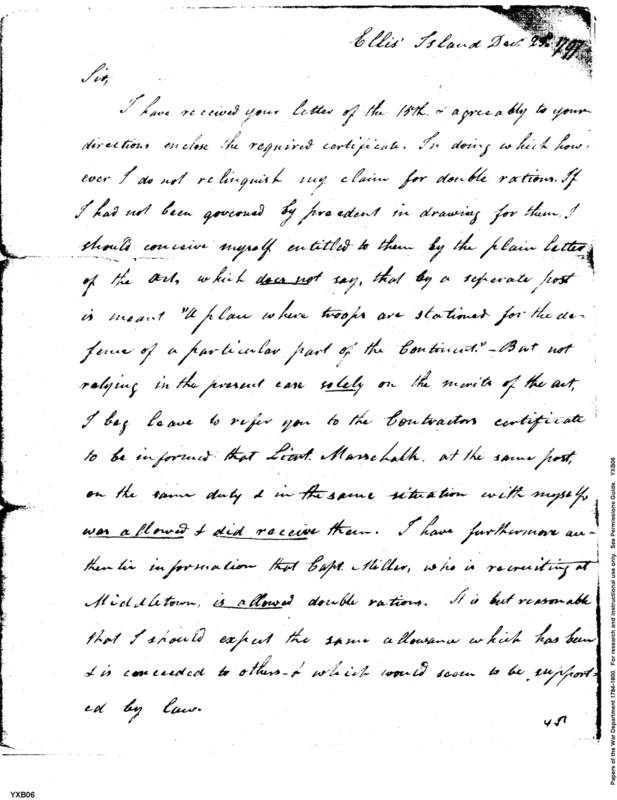 Ellis' Island Decr. 29th. 1797
Sir,
I have received your letter of the 15th. & agreeably to your
directions enclose the required certificate. In doing which how-
ever I do not relinquish my claim for double rations. If
I had not been governed by precedent in drawing for them, I
should conceive myself entitled to them by the plain letter
of the act, which does not say, that by a seperate post
is meant "a place where troops are stationed for the de-
fence of a particular part of the Continent." - But not
relying in the present case solely on the merits of the act,
I beg leave to refer you to the Contractors certificate
to be informed that Lieut. Marschalk, at the same post,
on the same duty & in the same situation with myself,
was allowed & did receive them. I have furthermore au-
thentic information that Capt. Miller, who is recruiting at
Middletown, is allowed double rations. It is but reasonable
that I should expect the same allowance which has been
& is conceeded to others - & which would seem to be support-
ed by law.
YXB06
Papers of the War Department 1784-1800. For research and instructional use only. See Permissions Guide. YXB06